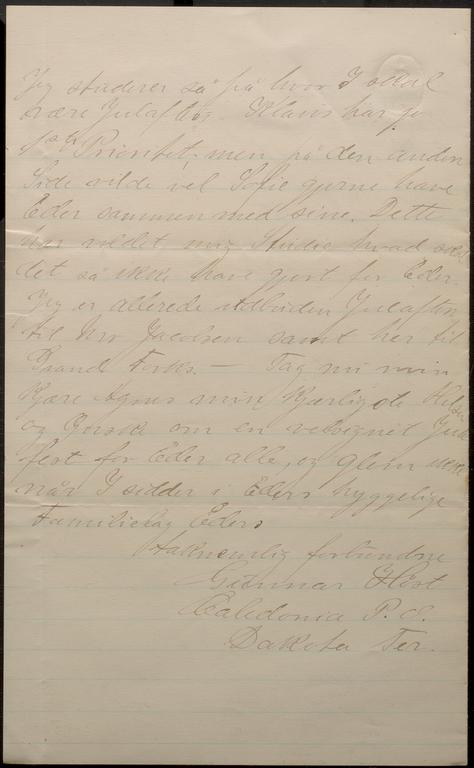 Jeg studerer så på hvor I skal
være Julaften. Klaus har jo
1ste Prioritet; men på den anden
Side vilde vel Sofie gjerne have
Eder sammen med sine. Dette
har voldet mig Studie hvad
det så ikke have gjort for Eder.
Jeg er allerede indbuden Julaften
til Mrs Jacobsen samt her til
Grand Forks. — Tag nu min
kjære Agnes min kjærligste
og Ønske om en velsignet Jule
fest for Eder alle, og glem ikke
når I sidder i Eders hyggelige
Familielag Eders
taknemlig forbundne
Gunnar Høst
Caledonia P. O.
Dakota Ter.